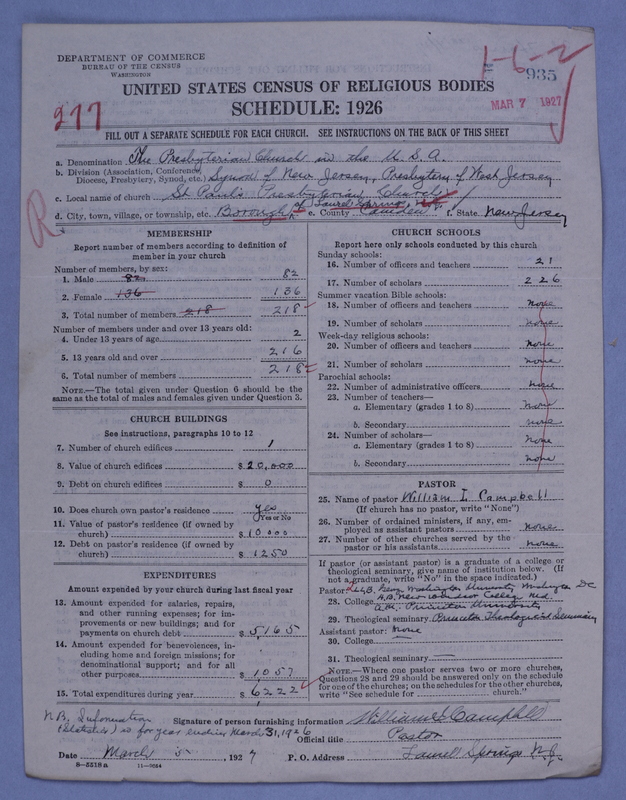 DEPARTMENT OF COMMERCE
BUREAU OF THE CENSUS
WASHINGTON
1-6-2
935
UNITED STATES CENSUS OF RELIGIOUS BODIES
SCHEDULE: 1926
277
MAR 7 1927
FILL OUT A SEPARATE SCHEDULE FOR EACH CHURCH. SEE INSTRUCTIONS ON THE BACK OF THIS SHEET
a. Denomination The Presbyterian Church in the U.S.A.
b. Division (Association, Conference, Diocese, Presbytery, Synod, etc.) Synod of New Jersey, Presbytery of West Jersey
c. Local name of church St Paul's Presbyterian Church
d. City, town, village, or township, etc. Borough of Laurel Springs, e. County Camden f. State New Jersey
R
MEMBERSHIP
Report number of members according to definition of
member in your church
Number of members, by sex:
1. Male 82 82
2. Female 136 136
3. Total number of members 218 218
Number of members under and over 13 years old:
4. Under 13 years of age 2
5. 13 years old and over 216
6. Total number of members 218
NOTE.—The total given under Question 6 should be the
same as the total of males and females given under Question 3.
CHURCH BUILDINGS
See instructions, paragraphs 10 to 12
7. Number of church edifices 1
8. Value of church edifices $ 20,000
9. Debt on church edifices $ 0
10. Does church own pastor's residence yes
(Yes or No)
11. Value of pastor's residence (if owned by
church) $ 10000
12. Debt on pastor's residence (if owned by
church) $ 1250
EXPENDITURES
Amount expended by your church during last fiscal year
13. Amount expended for salaries, repairs,
and other running expenses; for im-
provements or new buildings; and for
payments on church debt $ 5,165
14. Amount expended for benevolences, in-
cluding home and foreign missions; for
denominational support; and for all
other purposes $ 1057
15. Total expenditures during year $ 6222
CHURCH SCHOOLS
Report here only schools conducted by this church
Sunday schools:
16. Number of officers and teachers 21
17. Number of scholars 226
Summer vacation Bible schools:
18. Number of officers and teachers none
19. Number of scholars none
Week-day religious schools:
20. Number of officers and teachers none
21. Number of scholars none
Parochial schools:
22. Number of administrative officers none
23. Number of teachers—
a. Elementary (grades 1 to 8) none
b. Secondary none
24. Number of scholars—
a. Elementary (grades 1 to 8) none
b. Secondary none
PASTOR
25. Name of pastor William I. Campbell
(If church has no pastor, write "None")
26. Number of ordained ministers, if any, em-
ployed as assistant pastors none
27. Number of other churches served by the
pastor or his assistants none
If pastor (or assistant pastor) is a graduate of a college or
theological seminary, give name of institution below. (If
not a graduate, write "No" in the space indicated.)
Pastor: LL.B. Geo. Washington University Washington DC
28. College A.B. New Windsor College Md.
A.M. Princeton University
29. Theological seminary Princeton Theological Seminary
Assistant pastor: None
30. College
31. Theological seminary
NOTE.—Where one pastor serves two or more churches,
Questions 28 and 29 should be answered only on the schedule
for one of the churches; on the schedules for the other churches,
write "See schedule for church."
N.B. Information
(Statistics) is for year ending March 31, 1926
Signature of person furnishing information William I. Campbell
Official title Pastor
Date March 5, 1927 P. O. Address Laurel Springs N.J.
8-5518a 11-9024